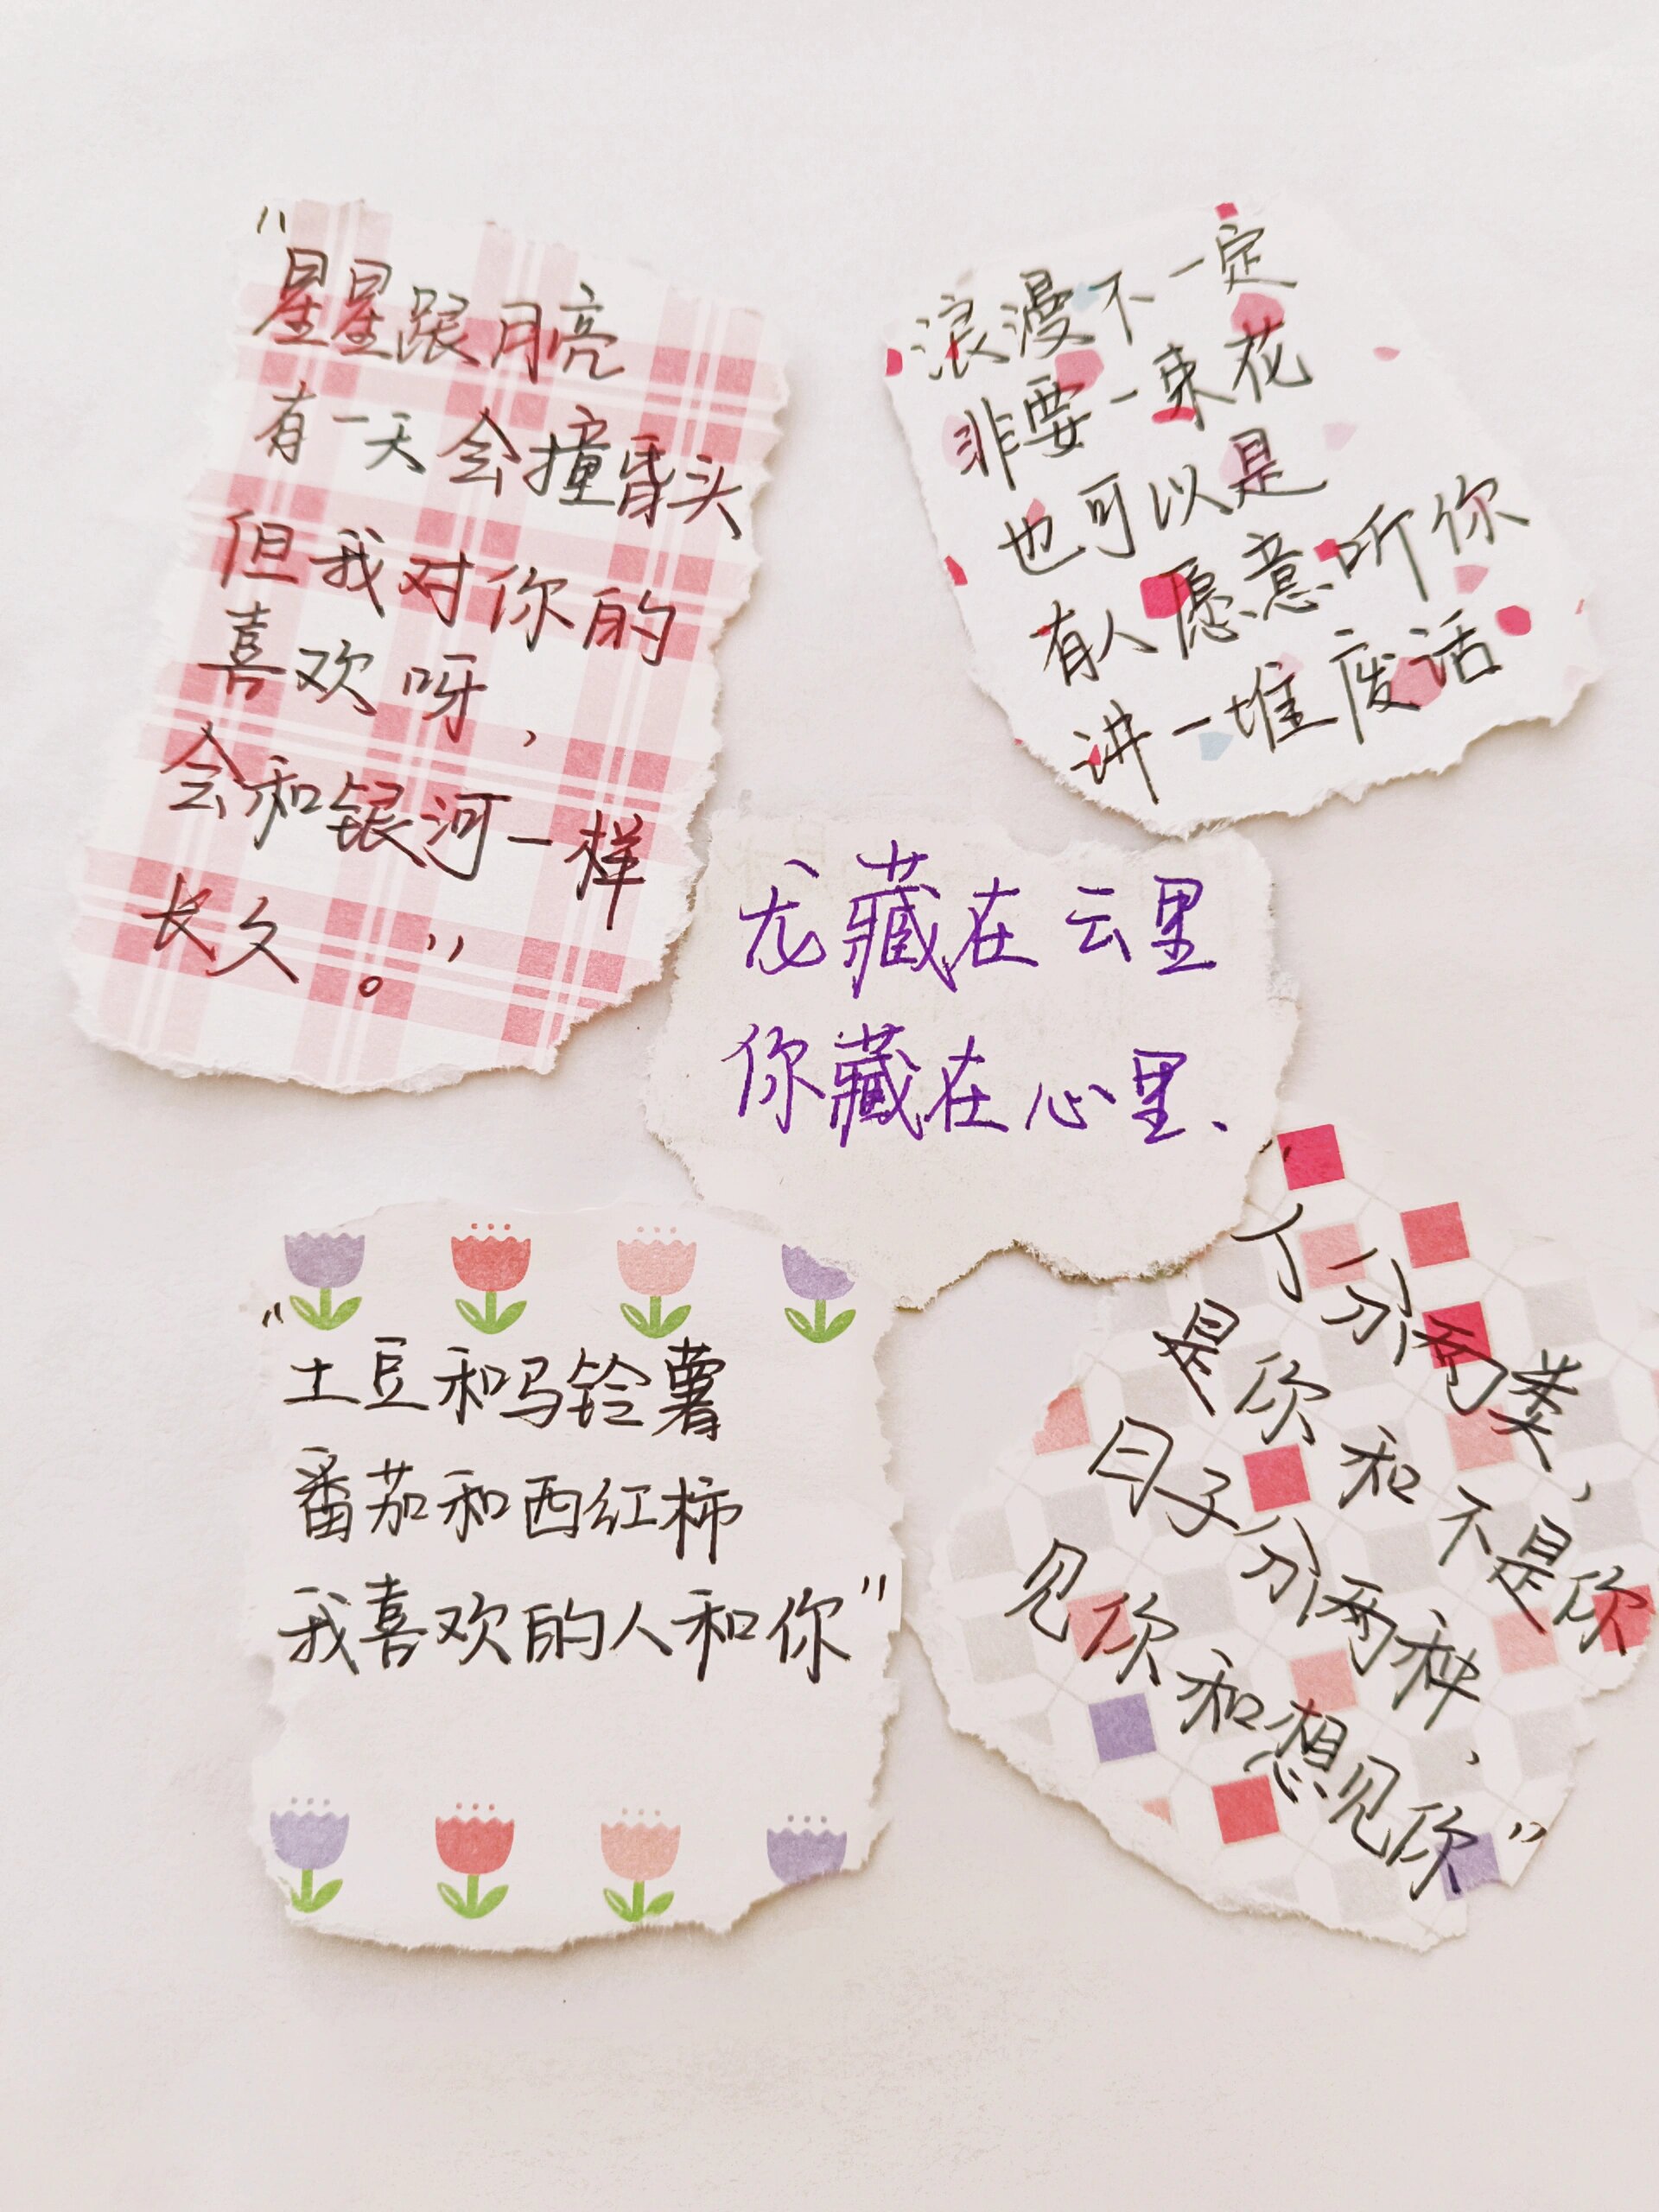 "星星跟月亮
有一天会撞昏头
但我对你的
喜欢呀，
会和银河一样
长久。"
浪漫不一定
非要一束花
也可以是
有人愿意听你
讲一堆废话
龙藏在云里
你藏在心里、
"土豆和马铃薯
番茄和西红柿
我喜欢的人和你"
"人分两类，
是你和不是你
日子分两种，
见你和想见你"